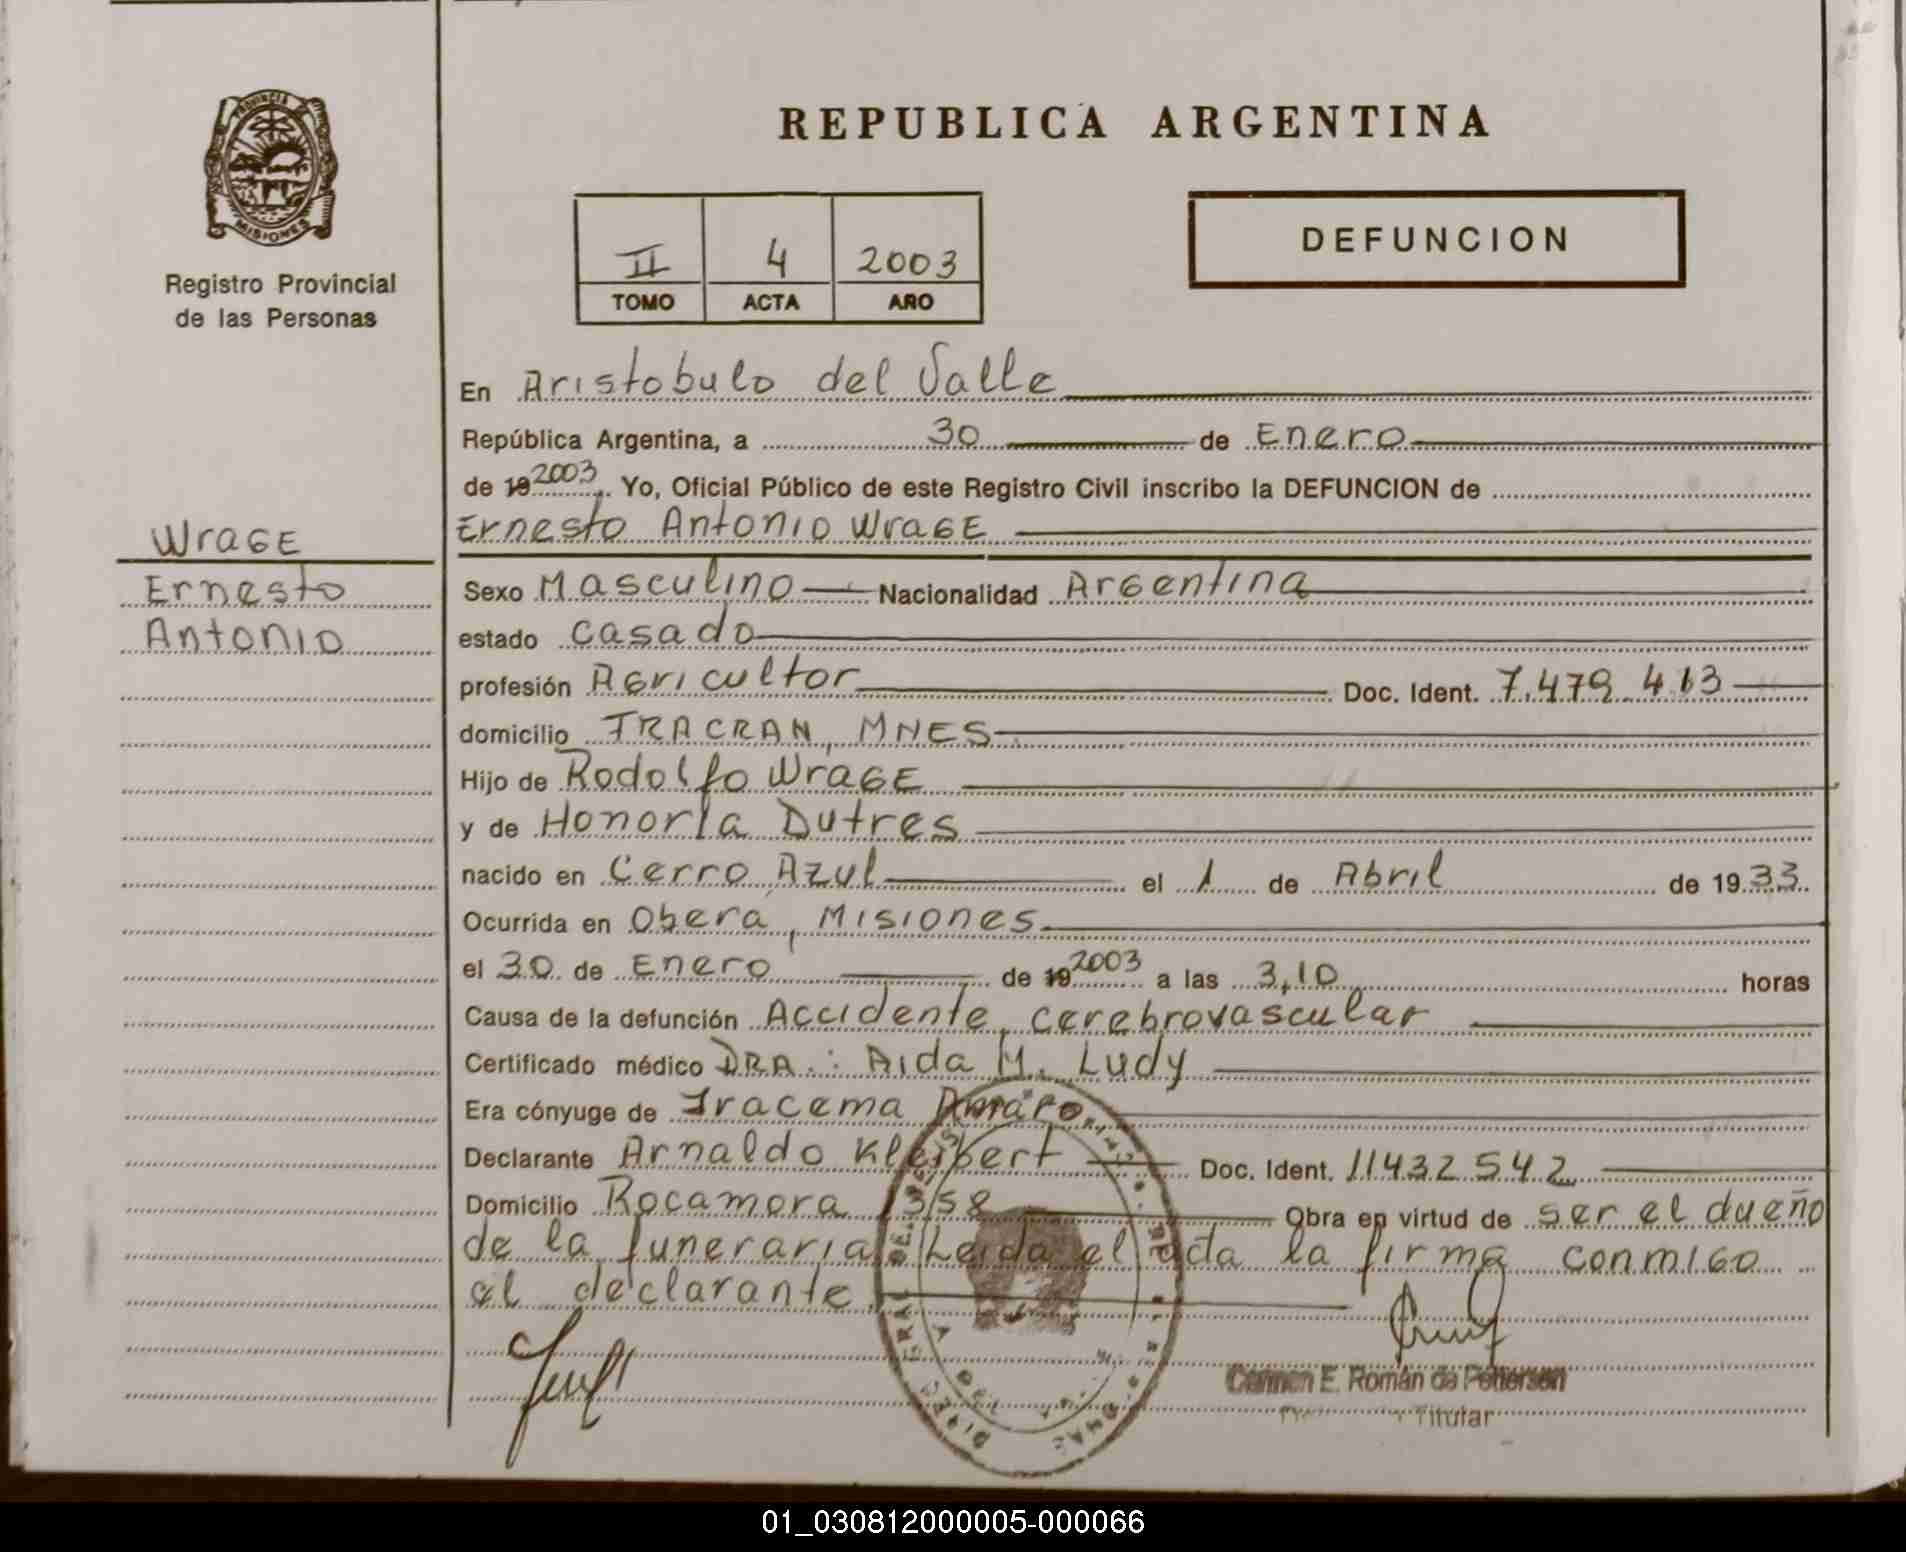 REPUBLICA ARGENTINA
PROVINCIA
MISIONES
Registro Provincial
de las Personas
II 4 2003
TOMO ACTA AÑO
DEFUNCION
En Aristobulo del Valle
República Argentina, a 30 de Enero
de 19 2003. Yo, Oficial Público de este Registro Civil inscribo la DEFUNCION de
Ernesto Antonio WraGE
WraGE
Ernesto
Antonio
Sexo Masculino Nacionalidad ArGentina
estado casado
profesión AGricultor Doc. Ident. 7.479.413
domicilio TRACRAN, MNES
Hijo de Rodolfo WraGE
y de Honoria Dutres
nacido en Cerro Azul el 1 de Abril de 1933
Ocurrida en Obera, Misiones
el 30 de Enero de 19 2003 a las 3,10 horas
Causa de la defunción Accidente cerebrovascular
Certificado médico DRA.: Aida M. Ludy
Era cónyuge de Iracema Amaro
Declarante Arnaldo Kleibert Doc. Ident. 11432542
Domicilio Rocamora 358 Obra en virtud de ser el dueño
de la funeraria. Leida el acta la firma conmiGo
el declarante
Carmen E. Román de Pettersen
Titular
01_030812000005-000066